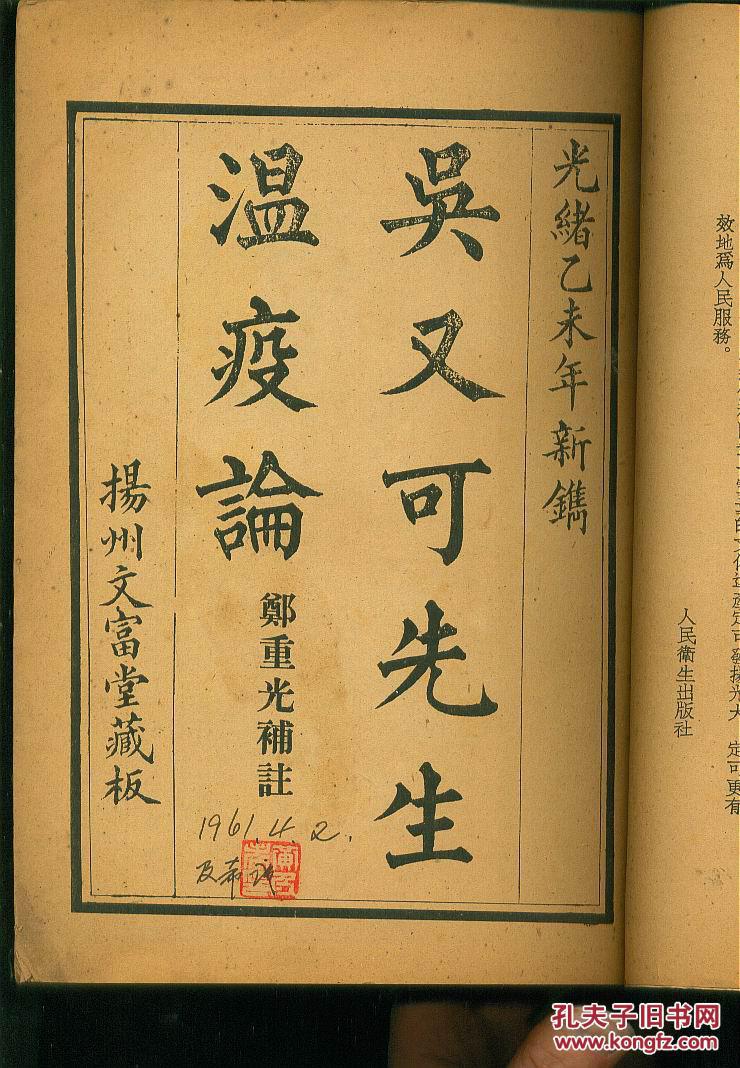 效地爲人民服務。
人民衛生出版社
光緒乙未年新鐫
吳又可先生
温疫論
鄭重光補註
揚州文富堂藏板
1961.4.2.
孔夫子旧书网
www.kongfz.com